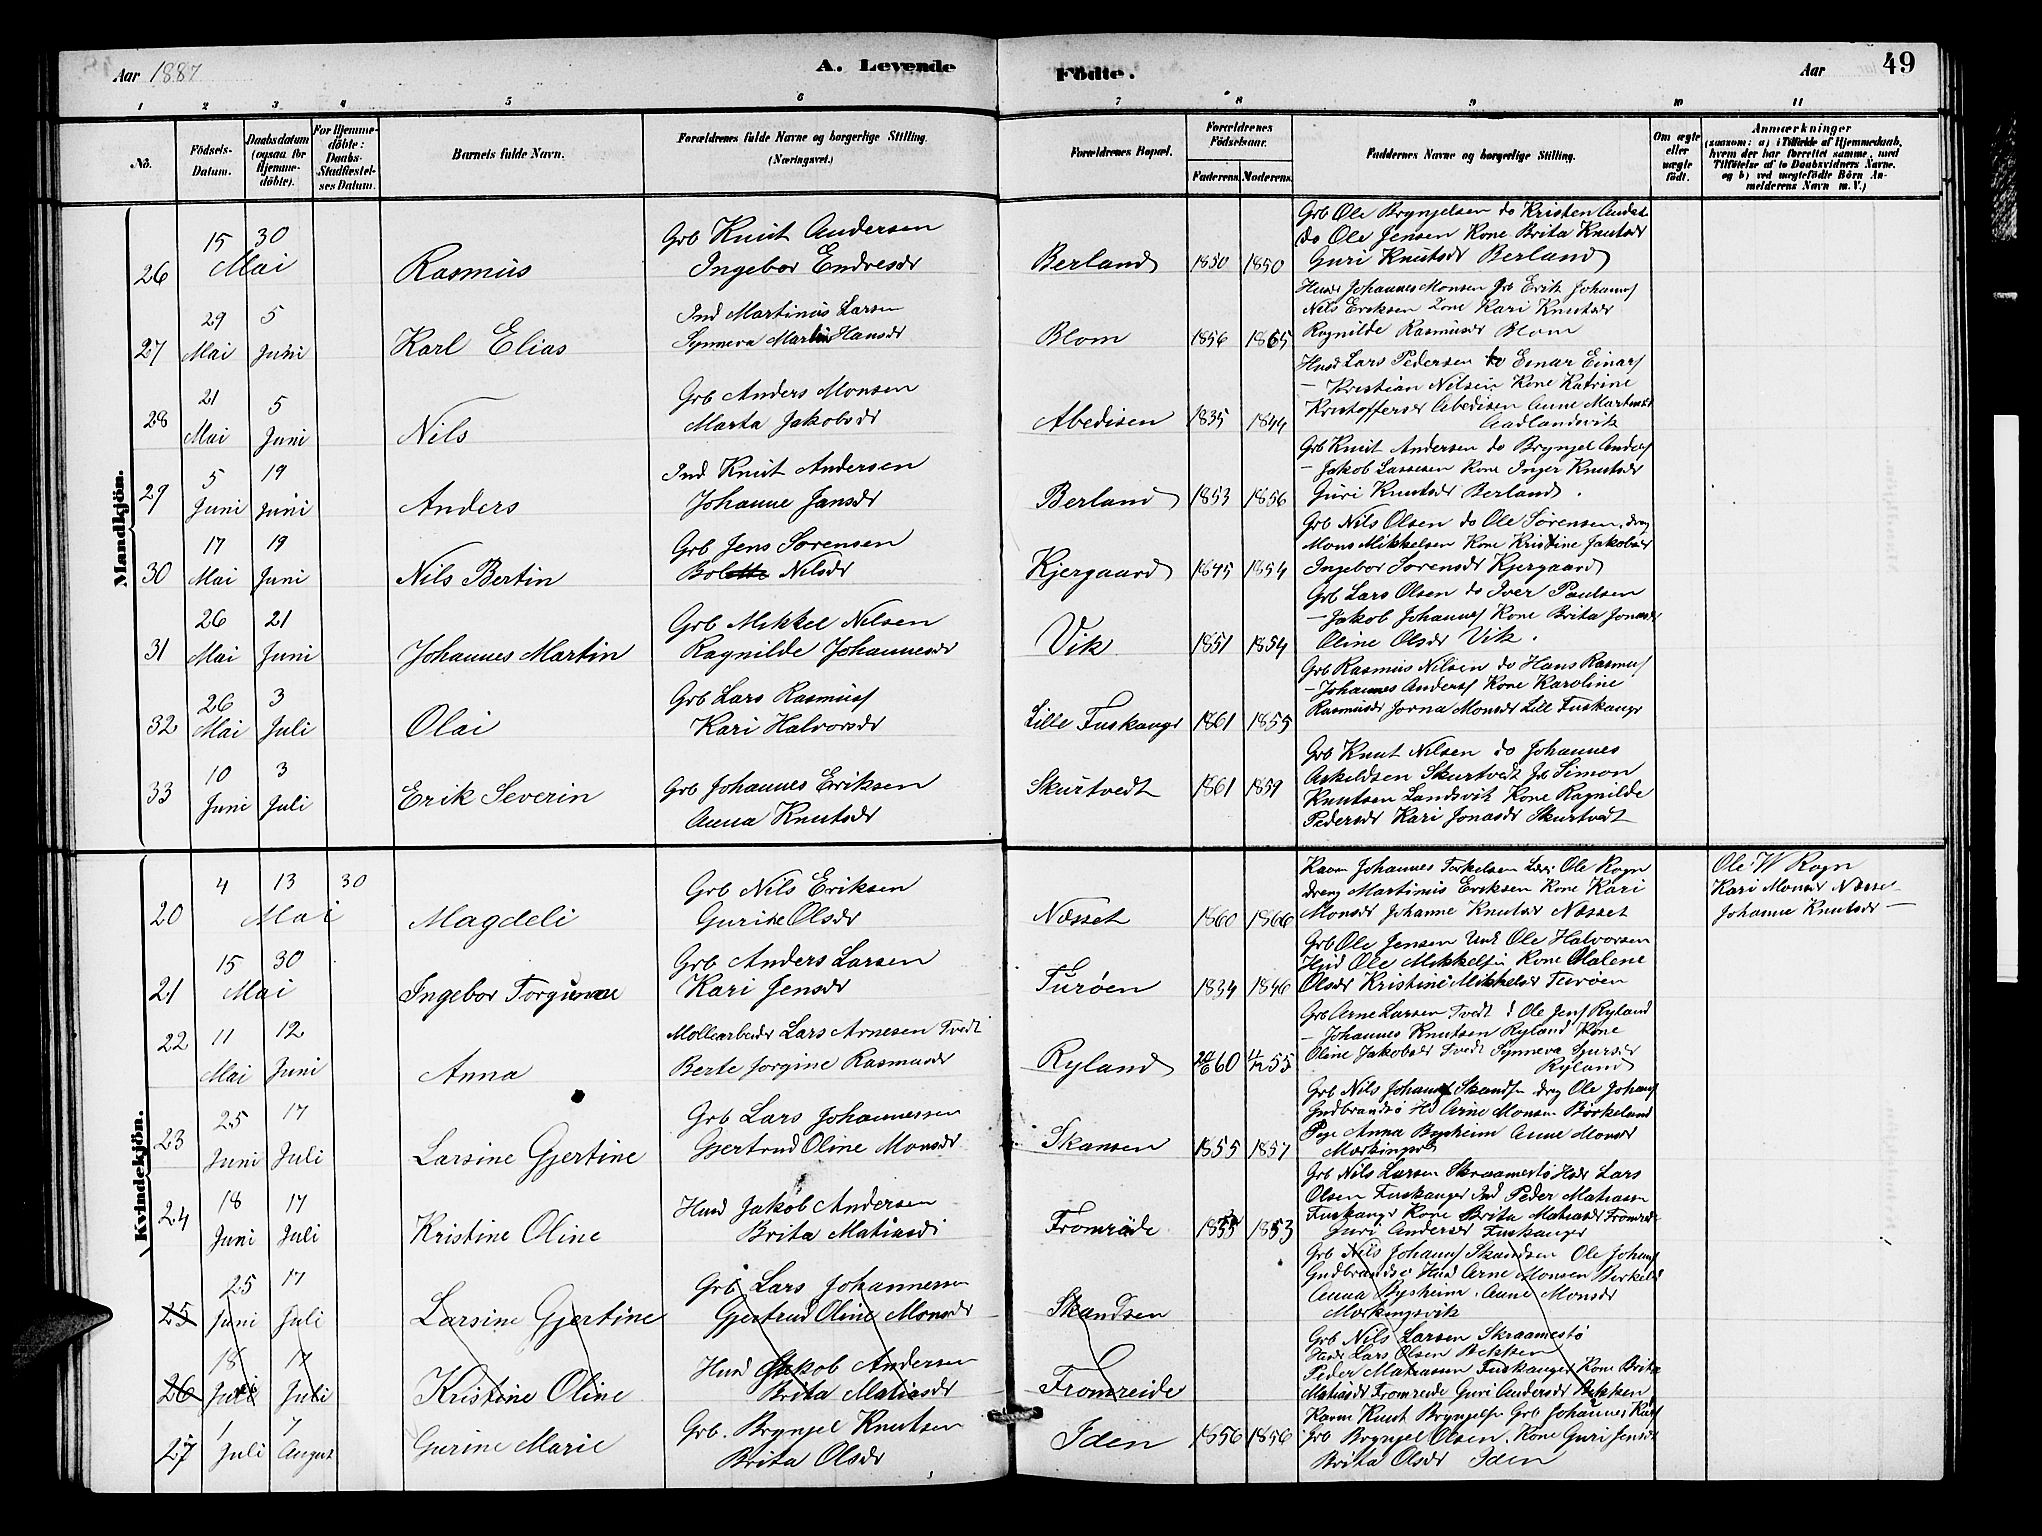 Aar 1887
A. Levende
Födte.
Aar
49
1 2 3 4 5 6 7 8 9 10 11
No.
Födsels-Datum.
Daabsdatum (ogsaa for Hjemme-döbte).
For Hjemme-döbte: Daabs-Stadfæstelses Datum.
Barnets fulde Navn.
Forældrenes fulde Navne og borgerlige Stilling. (Næringsvei.)
Forældrenes Bopæl.
Forældrenes Födselsaar.
Faderens. Moderens.
Faddernes Navne og borgerlige Stilling.
Om ægte eller uægte födt.
Anmærkninger
(saasom: a) i Tilfælde af Hjemmedaab, hvem der har forrettet samme, med Tilföielse af to Daabsvidners Navne, og b) ved uægtefödte Börn Anmelderens Navn m. V.)
Mandkjön.
26 15 30 Mai Rasmus
Grb Knut Andersen
Ingebor Endresdr
Berland 1850 1850
Grb Ole Brynjelsen do Kristen Anders
do Ole Jensen Kone Brita Knutsdr
Guri Knutsdr Berland
27 29 Mai 5 Juni Karl Elias
Ind Martinus Larsen
Synneva Martin Hansdr
Blom 1856 1865
Husm Johannes Monsen Grb Erik Johans
Nils Eriksen Kone Kari Knutsdr
Ragnilde Rasmusdr Blom
28 21 Mai 5 Juni Nils
Grb Anders Monsen
Marta Jakobsdr
Abedisen 1835 1844
Husd Lars Pedersen do Einar Einars
— Kristian Nilsen Kone Katrine
Kristoffersdr Abedisen Anne Martinsdr
Aadlandsvik
29 5 Juni 19 Juni Anders
Ind Knut Andersen
Johanne Jansdr
Berland 1853 1856
Grb Knut Andersen do Brynjel Anders
— Jakob Lassesen Kone Inger Knutsdr
Guri Knutsdr Berland.
30 17 Mai 19 Juni Nils Bertin
Grb Jens Sørensen
Bolette Nilsdr
Kjergaard 1845 1854
Grb Nils Olsen do Ole Sørensen, dreng
Mons Mikkelsen Kone Kristine Jakobsdr
Ingebor Sørensdr Kjergaard
31 26 Mai 21 Juni Johannes Martin
Grb Mikkel Nilsen
Ragnilde Johannesdr
Vik 1851 1854
Grb Lars Olsen do Iver Paulsen
— Jakob Johannes Kone Brita Jonasdr
Oline Olsdr Vik.
32 26 Mai 3 Juli Olai
Grb Lars Rasmus
Kari Halvorsdr
Lille Fuskanger 1861 1855
Grb Rasmus Nilsen do Hans Rasmus
— Johannes Anders Kone Karoline
Rasmusdr Jorna Monsdr Lille Fuskanger
33 10 Juni 3 Juli Erik Severin
Grb Johannes Eriksen
Anna Knutsdr
Skurtvedt 1861 1859
Grb Knut Nilsen do Johannes
Askeldsen Skurtvedt Grb Simon
Knutsen Landsvik Kone Ragnilde
Pedersdr Kari Jonasdr Skurtvedt
Kvindekjön.
20 4 13 30 Mai Magdeli
Grb Nils Eriksen
Gurine Olsdr
Næsset 1860 1866
Kaarm Johannes Torkelsen Lær Ole Rogn
dreng Martinus Eriksen Kone Kari
Monsdr Johanne Knutsdr Næsset
Ole W Rogn
Kari Monsdr Næsset
Johanne Knutsdr —
21 15 30 Mai Ingebor Torgunna
Grb Anders Larsen
Kari Jensdr
Turøen 1834 1846
Grb Ole Jensen Unk Ole Halvorsen
Husd Ole Mikkelsen Kone Olalene
Olsdr Kristine Mikkelsdr Turøen
22 11 Mai 12 Juni Anna
Møllearbeider Lars Arnesen Tvedt
Berte Jorgine Rasmusdr
Ryland 24/6 60 11/12 55
Grb Arne Larsen Tvedt d Ole Jens Ryland
— Johannes Knutsen Ryland Kone
Oline Jakobsdr Tvedt Synneva Sjursdr
Ryland
23 25 Juni 17 Juli Larsine Gjertine
Grb Lars Johannessen
Gjertrud Oline Monsdr
Skansen 1855 1857
Grb Nils Johans Skandsen drg Ole Johans
Gudbrandsø Hd Arne Monsen Børkeland
Pige Anna Bysheim Anne Monsdr
Mærkingsvik
24 18 Juni 17 Juli Kristine Oline
Husd Jakob Andersen
Brita Matiasdr
Fromreide 1855 1853
Grb Nils Larsen Skraamestø Husd Lars
Olsen Fuskanger Ind Peder Matiassen
Fuskanger Kone Brita Matiasdr Fromreide
Guri Andersdr Fuskanger
25 25 Juni 17 Juli Larsine Gjertine
Grb Lars Johannessen
Gjertrud Oline Monsdr
Skandsen
Grb Nils Johans Skandsen Ole Johans
Gudbrandsø Husd Arne Monsen Birkeld
Anna Bysheim. Anne Monsdr
Mærkingsvik
26 18 Juli 17 Juli Kristine Oline
Husd Jakob Andersen
Brita Matiasdr
Fromreide
Grb Nils Larsen Skraamestø
Husd Lars Olsen Bekken
Peder Matiassen Fuskanger Kone Brita
Matiasdr Fromreide Guri Andersdr Bekken
27 1 Juli 7 August Gurine Marie
Grb. Brynjel Knutsen
Brita Olsdr
Iden 1856 1856
Kaarm Knut Brynjels Grb Johannes Knuts
Grb Brynjel Olsen. Kone Guri Jensdr
Brita Olsdr Iden